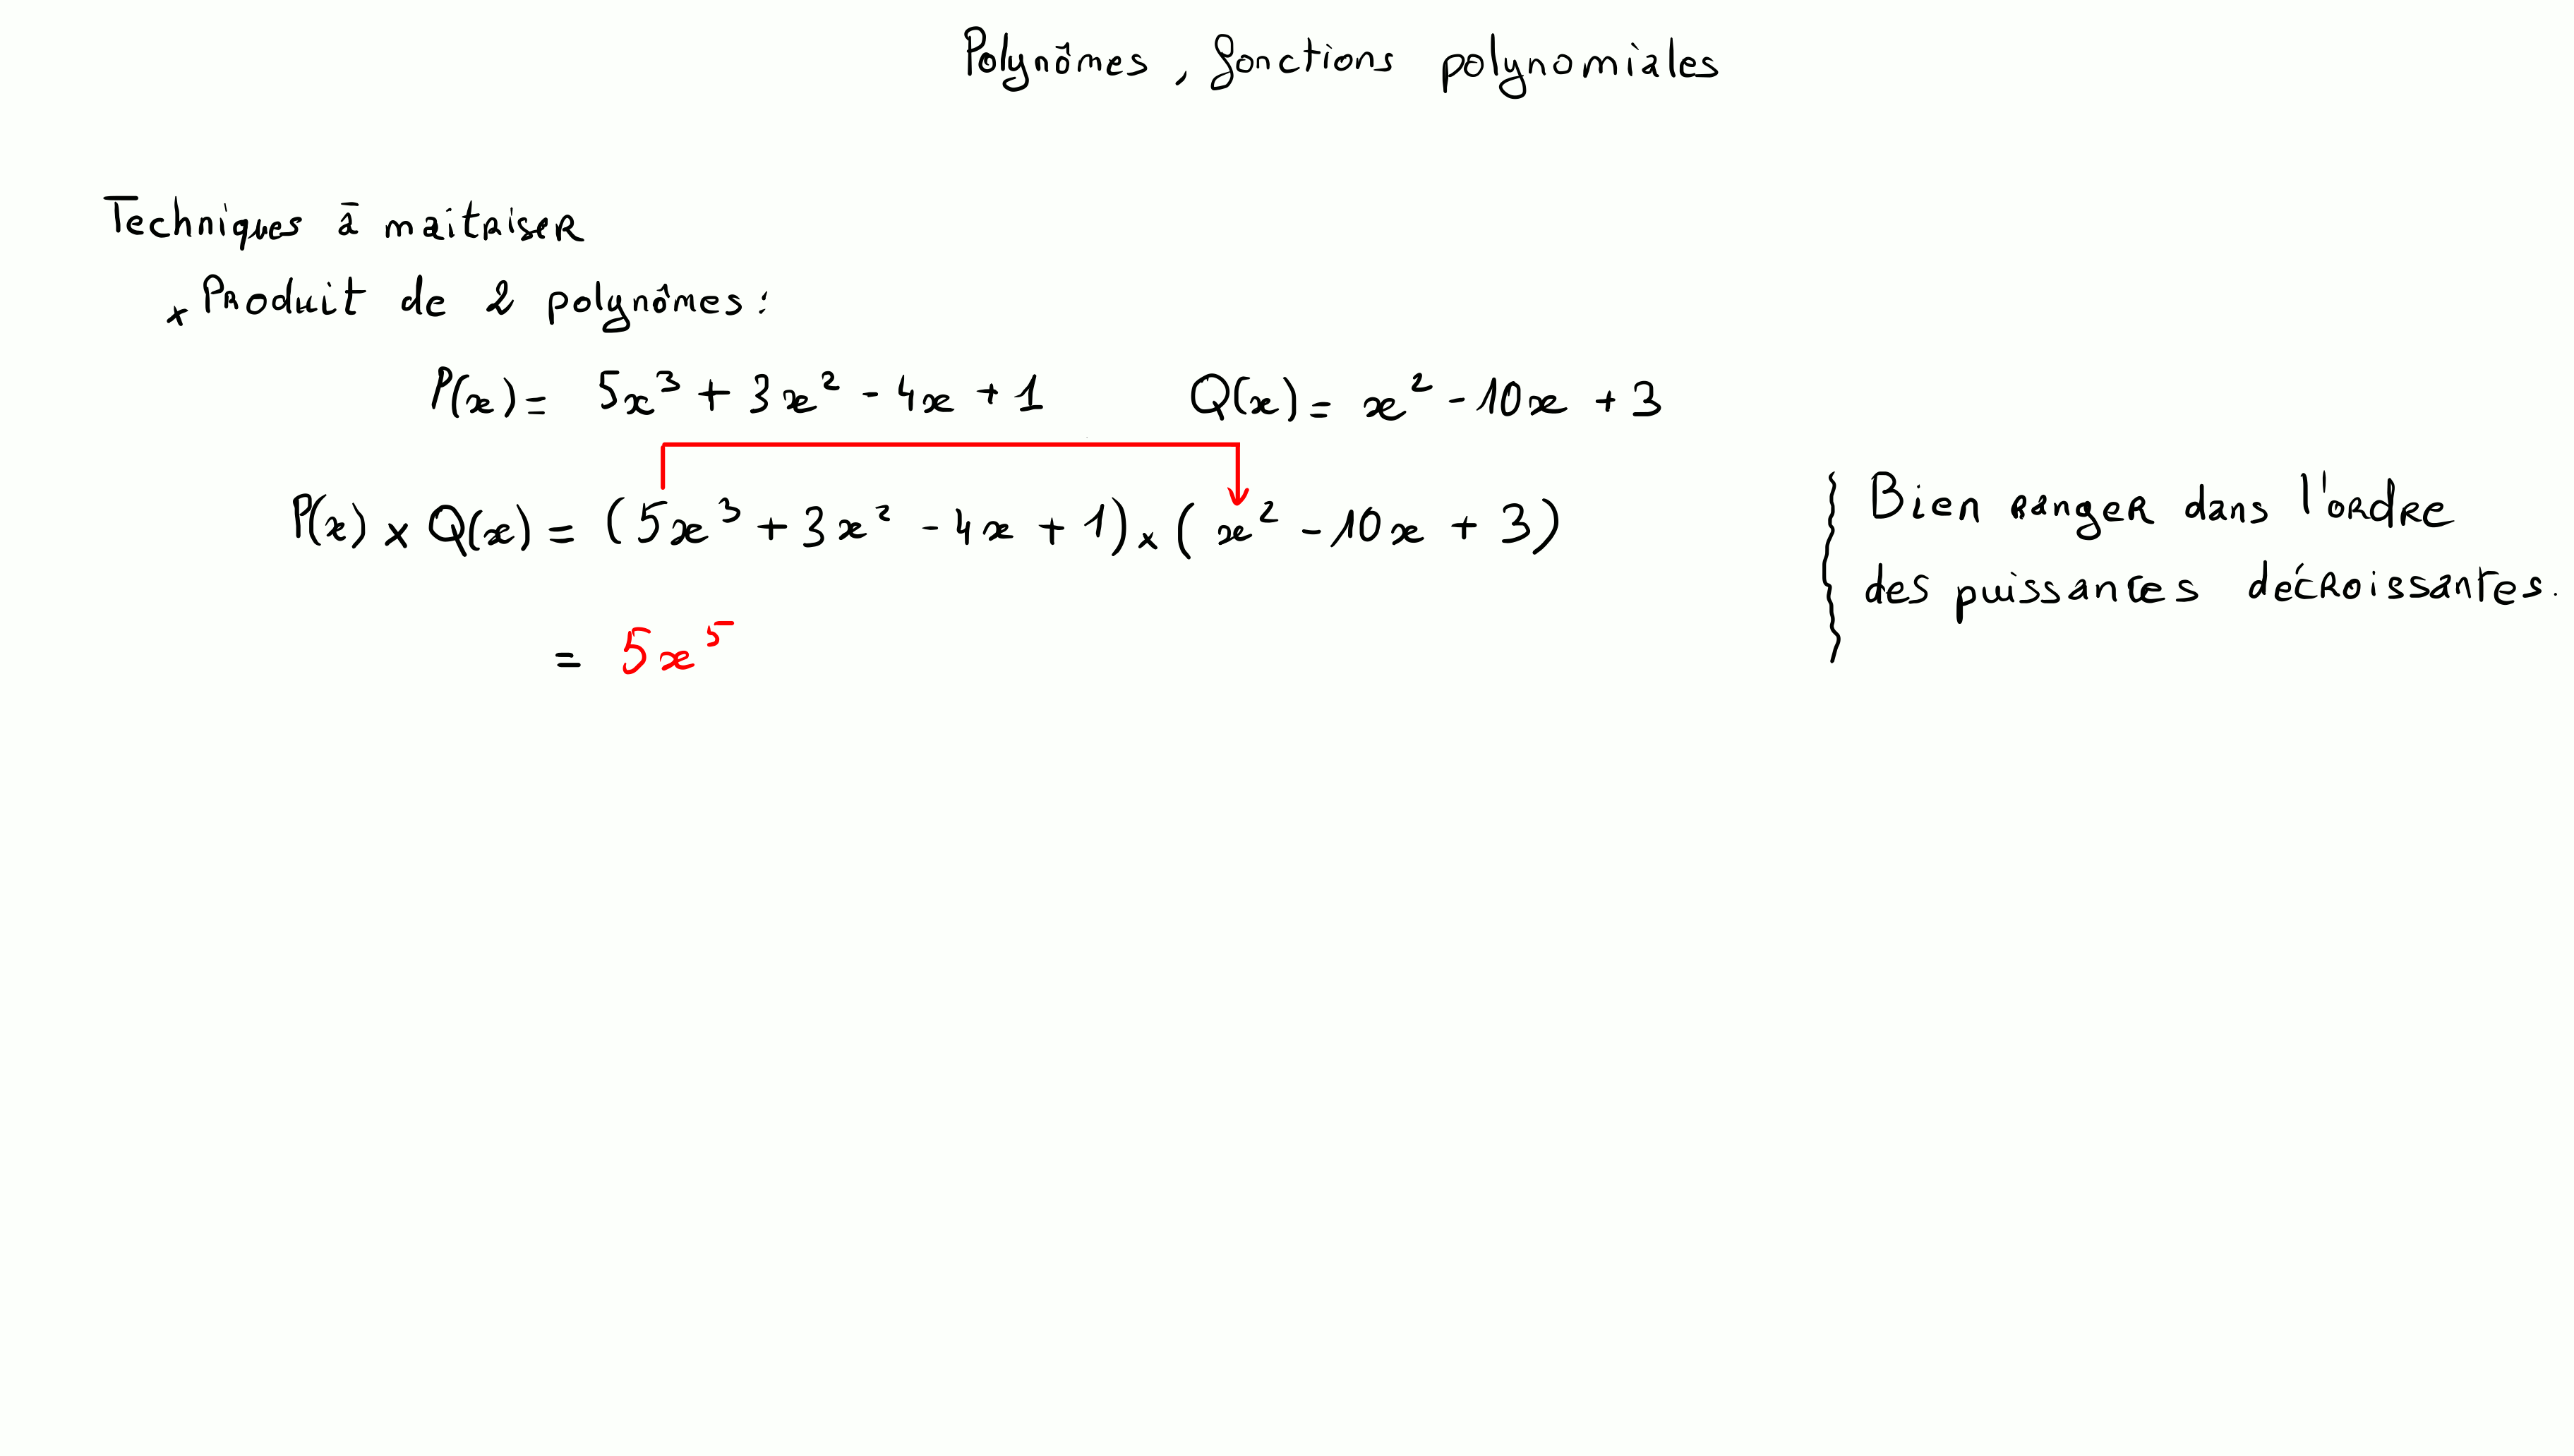 Polynômes, fonctions polynomiales
Techniques à maitriser
x Produit de 2 polynômes :
P(x) = 5x³ + 3x² - 4x + 1 Q(x) = x² - 10x + 3
P(x) × Q(x) = (5x³ + 3x² - 4x + 1) × (x² - 10x + 3)
= 5x⁵
Bien ranger dans l'ordre
des puissances décroissantes.